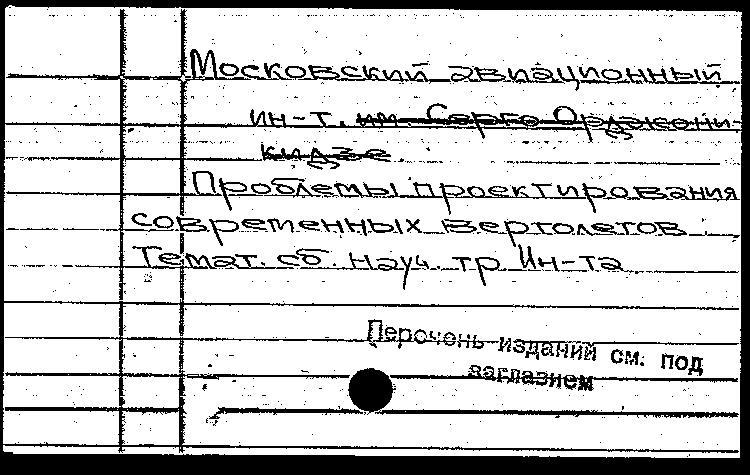 Московский авиационный
ин-т. им. Серго Орджони-
кидзе.
Проблемы проектирования
современных вертолетов.
Темат. сб. науч. тр Ин-та
Перечень изданий см. под
заглавием